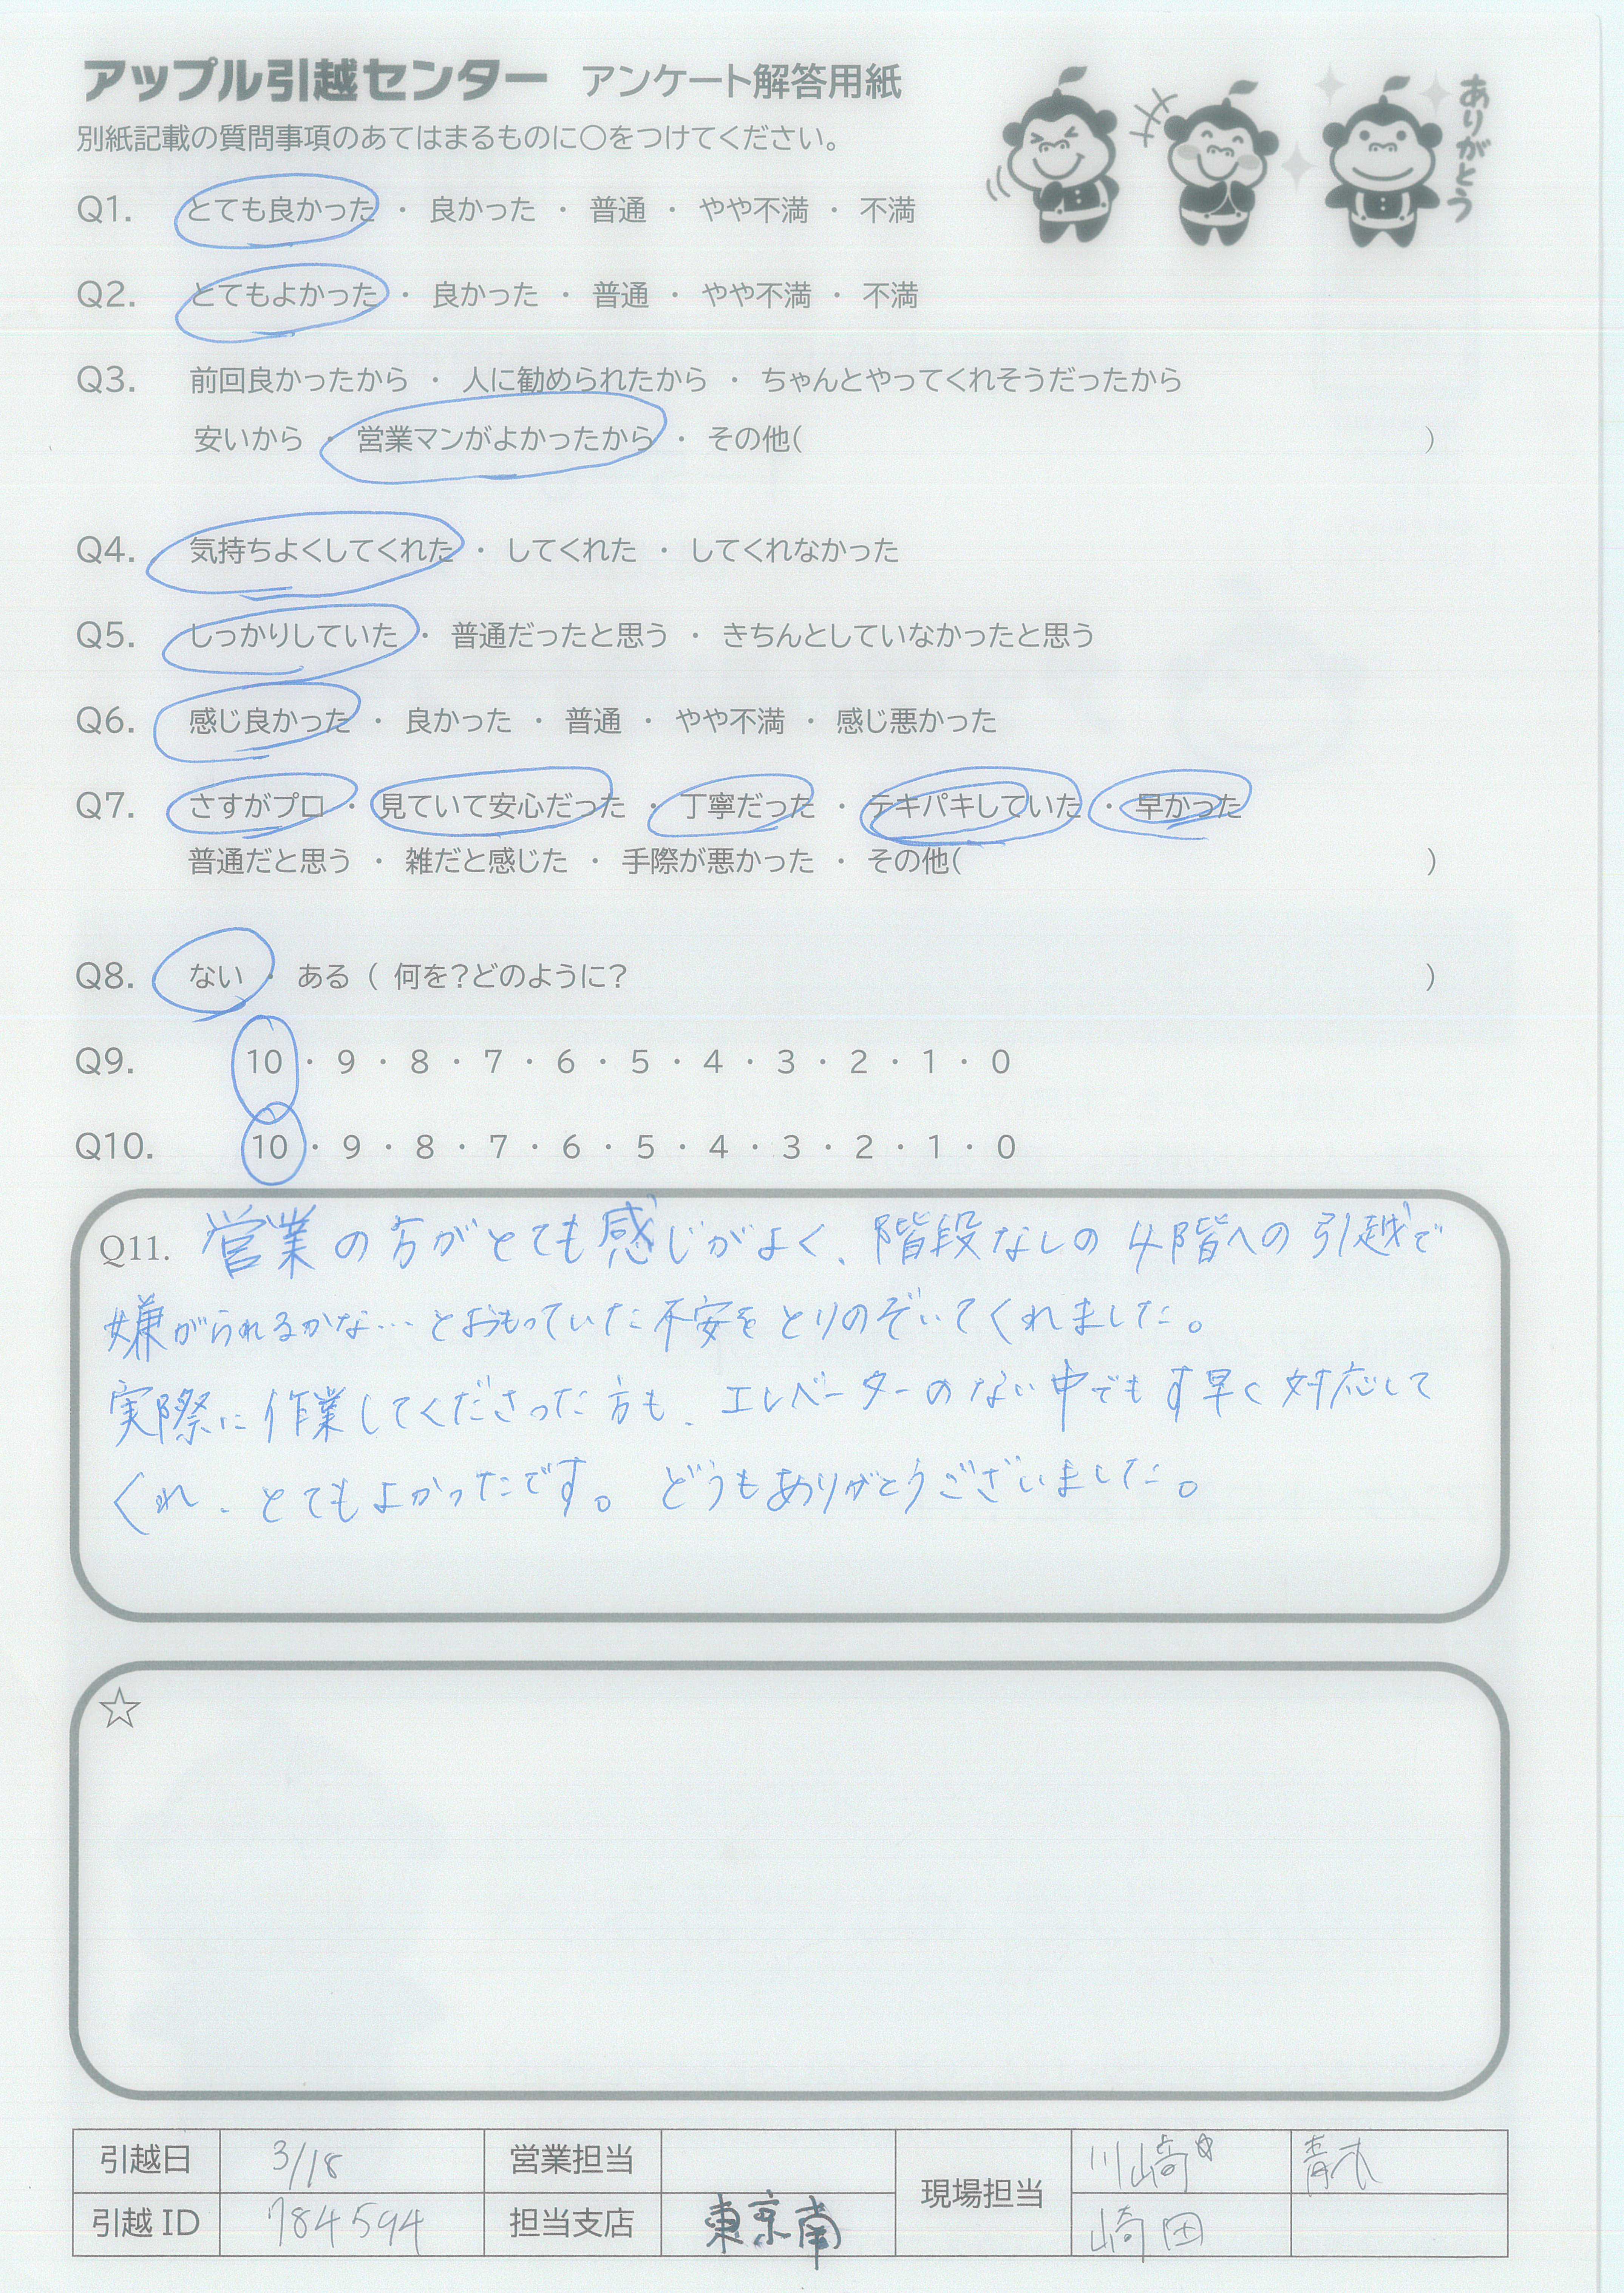 アップル引越センター アンケート解答用紙
別紙記載の質問事項のあてはまるものに○をつけてください。
ありがとう
Q1. とても良かった ・ 良かった ・ 普通 ・ やや不満 ・ 不満
Q2. とてもよかった ・ 良かった ・ 普通 ・ やや不満 ・ 不満
Q3. 前回良かったから ・ 人に勧められたから ・ ちゃんとやってくれそうだったから
安いから ・ 営業マンがよかったから ・ その他( )
Q4. 気持ちよくしてくれた ・ してくれた ・ してくれなかった
Q5. しっかりしていた ・ 普通だったと思う ・ きちんとしていなかったと思う
Q6. 感じ良かった ・ 良かった ・ 普通 ・ やや不満 ・ 感じ悪かった
Q7. さすがプロ ・ 見ていて安心だった ・ 丁寧だった ・ テキパキしていた ・ 早かった
普通だと思う ・ 雑だと感じた ・ 手際が悪かった ・ その他( )
Q8. ない ・ ある ( 何を?どのように? )
Q9. 10 ・ 9 ・ 8 ・ 7 ・ 6 ・ 5 ・ 4 ・ 3 ・ 2 ・ 1 ・ 0
Q10. 10 ・ 9 ・ 8 ・ 7 ・ 6 ・ 5 ・ 4 ・ 3 ・ 2 ・ 1 ・ 0
Q11. 営業の方がとても感じがよく、階段なしの4階への引越で
嫌がられるかな…とおもっていた不安をとりのぞいてくれました。
実際に作業してくださった方も、エレベーターのない中でもす早く対応して
くれ、とてもよかったです。どうもありがとうございました。
☆
引越日 3/18 営業担当 現場担当 川崎☆ 青木
引越ID 784594 担当支店 東京南 崎田